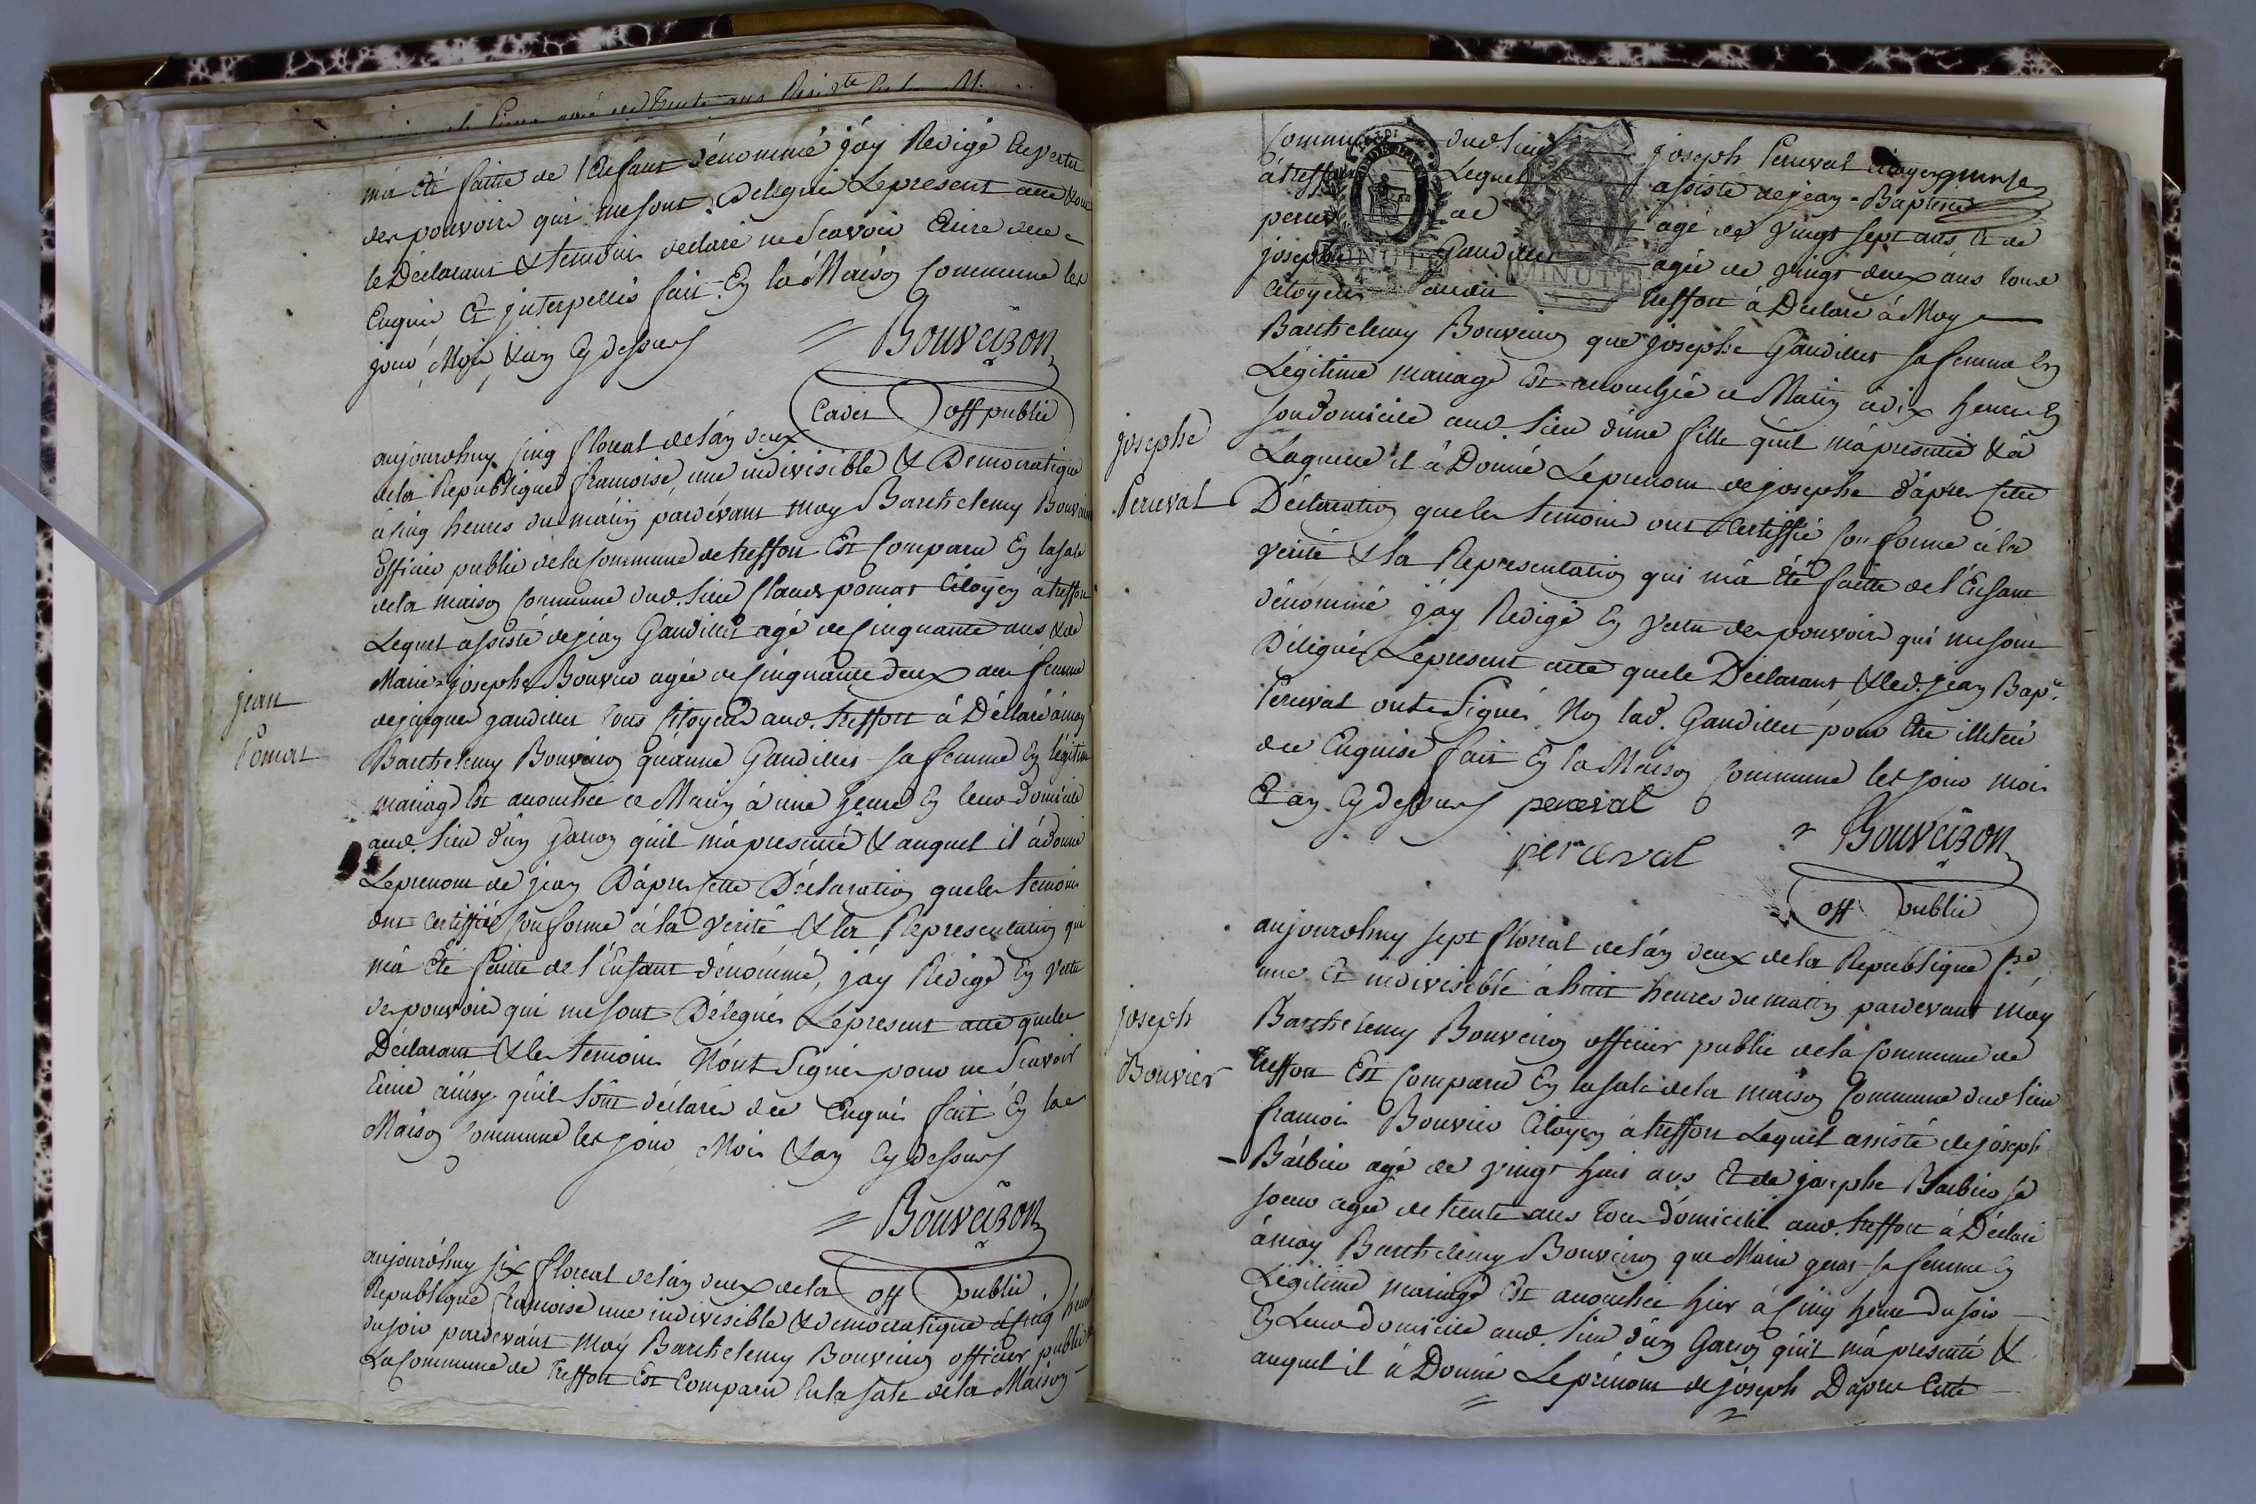 mà été faitte de l'Enfant dénommé j'ay Redigé En vertu
des pouvoirs qui me sont Delegués Le present acte &
le Déclarant & temoins declaré ne Scavoir Ecrire de ce
Enquis Et interpellés fait En la Maison Commune les
jour Mois & an Cy dessus
Bouveiron
off public
aujourdhuy cinq floreal de l'an deux
de la Republique francoise, une indivisible & Democratique
à cinq heures du matin pardevant moy Barthelemy Bouveiron
officier public de la Commune de treffort Est Comparu En la sale
de la maison Commune dud. lieu Claude pomat Citoyen à treffort
Lequel assisté de jean Gaudillet agé de Cinquante ans & de
Marie-josephe Bouvier agée de Cinquante deux ans femme
de jacques gaudillet tous Citoyens aud. treffort à Déclaré à moy
Barthelemy Bouveiron qu'anne Gaudillet sa femme En légitime
mariage Est accouchée ce Matin à une heure En leur domicile
aud. lieu d'un garcon qu'il m'a presenté & auquel il à donné
Le prenom de jean D'apres cette Déclaration que les temoins
ont Certiffié Conforme à la verité & la Representation qui
m'à été faitte de l'Enfant dénommé, j'ay Rédigé En vertu
des pouvoirs qui me sont Délegués Le present acte que les
Déclarant & les temoins N'ont Signés pour ne Scavoir
Ecrire ainsy qu'ils l'ont déclarés de ce Enquis fait En la
Maison Commune les jour Mois & an Cy dessus
Bouveiron
off public
aujourdhuy six floreal de l'an deux de la
Republique francoise une indivisible & democratique à cinq heures
du soir pardevant moy Barthelemy Bouveiron officier public de
La Commune de Treffort Est Comparu En la sale de la Maison
jean
Pomat
Commune dud. lieu joseph Perceval Citoyen
à treffort Lequel assisté de jean-Baptiste
perceval agé de vingt sept ans & de
josephe Gaudillet agée de vingt deux ans tous
Citoyens audit treffort à Déclaré à Moy
MINUTE
MINUTE
Barthelemy Bouveiron que josephe Gaudillet sa femme En
Légitime mariage Est accouchée ce Matin à dix heures En
son domicile aud. lieu d'une fille qu'il m'à presenté & à
Laquelle il à Donné Le prenom de josephe d'apres cette
Déclaration que les temoins ont Certiffié Conforme à la
verité & la Representation qui m'à été faitte de l'Enfant
dénommé j'ay Redigé En vertu des pouvoirs qui me sont
Délegués Le present acte que le Déclarant & led. jean Bap.te
Perceval ont Signés Non lad. Gaudillet pour être illiterée
de ce Enquise fait En la Maison Commune les jour mois
Et an Cy dessus perceval
perceval
Bouveiron
off public
josephe
Perceval
aujourdhuy sept floreal de l'an deux de la Republique f.se
une Et indivisible à huit heures du matin pardevant moy
Barthelemy Bouveiron officier public de la Commune de
treffort Est Comparu En la sale de la maison Commune dud. lieu
francois Bouvier Citoyen à treffort Lequel assisté de joseph
Barbier agé de vingt huit ans Et de josephe Barbier sa
soeur agée de trente ans tous domicilié aud. treffort à Déclaré
à moy Barthelemy Bouveiron que Marie sa femme En
Légitime mariage Est accouchée hier à Cinq heures du soir
En Leur domicile aud. lieu d'un Garcon qu'il m'a presenté &
auquel il à Donné Le prénom de joseph D'apres Cette
joseph
Bouvier